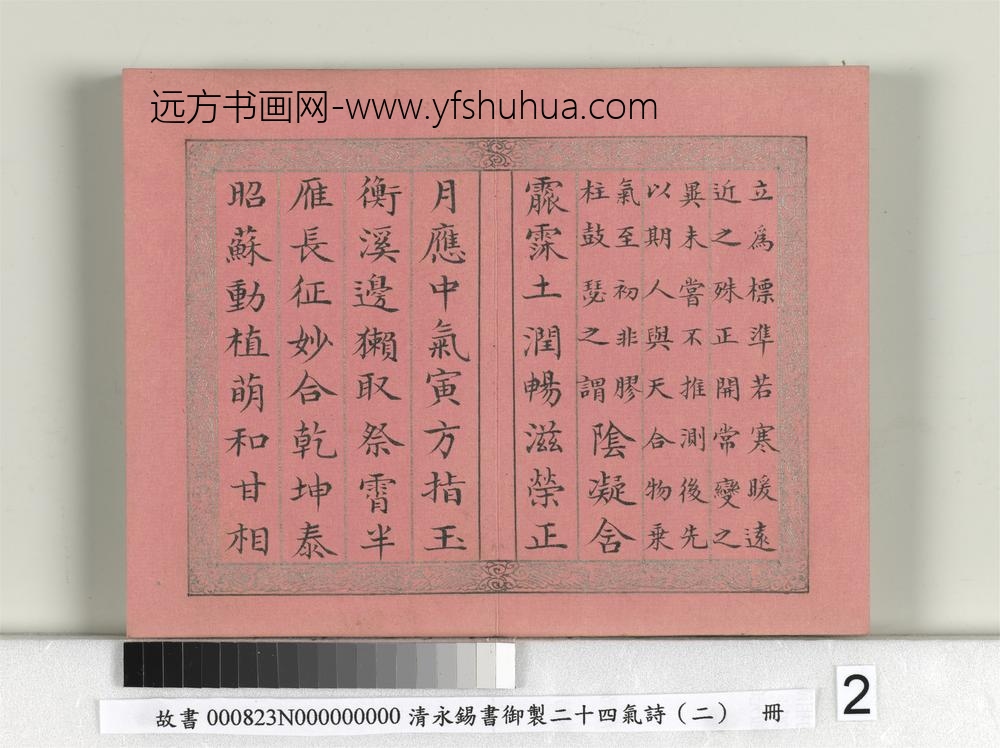 远方书画网-www.yfshuhua.com
立為標準若寒暖遠
近之殊正開常變之
異未嘗不推測後先
以期人與天合物乗
氣至初非膠
柱鼓瑟之謂
陰凝含
霢霂土潤暢滋榮正
月應中氣寅方指玉
衡溪邊獺取祭霄半
雁長征妙合乾坤泰
昭蘇動植萌和甘相
故書 000823N000000000 清永錫書御製二十四氣詩（二） 冊
2